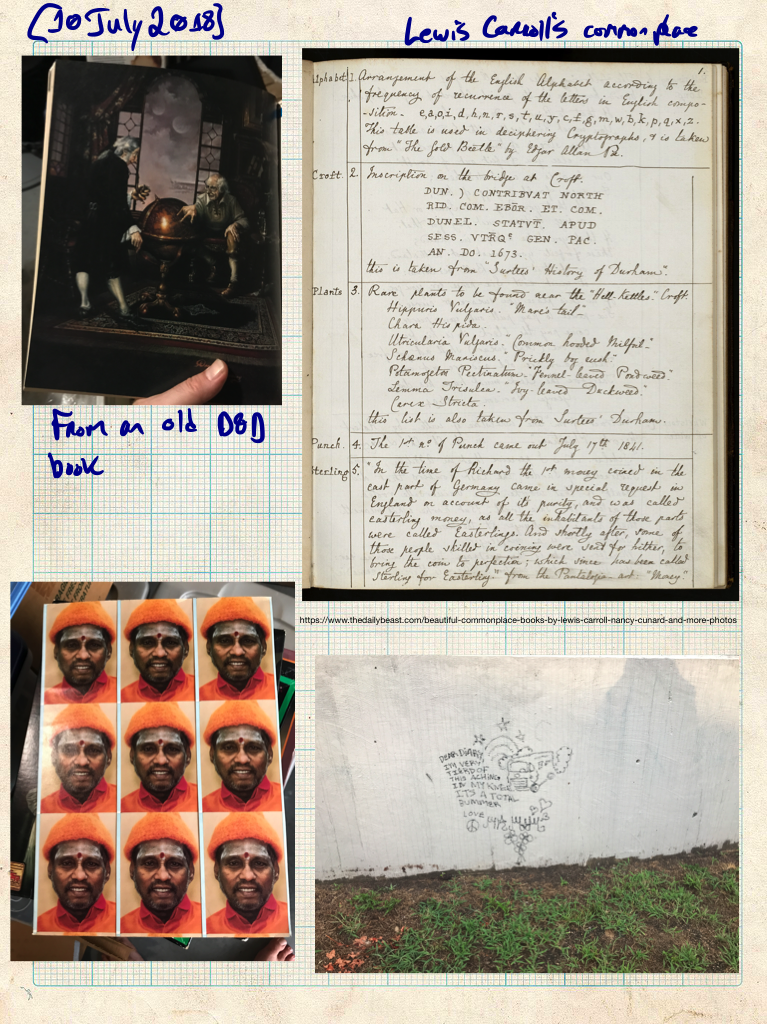 [10 July 2018]
Lewis Carroll's commonplace
1.
Alphabet 1. Arrangement of the English Alphabet according to the
frequency of recurrence of the letters in English compo-
-sition. e,a,o,i,d,h,n,r,s,t,u,y,c,f,g,m,w,b,k,p,q,x,z.
This table is used in deciphering Cryptographs, & is taken
from "The Gold Beetle" by Edgar Allan Po.
Croft. 2. Inscription on the bridge at Croft.
DUN. ) CONTRIBVAT NORTH
RID. COM. EBŌR. ET. COM.
DUNEL. STATVT. APUD
SESS. VTRQᵉ GEN. PAC.
AN. DO. 1673.
this is taken from "Surtees' History of Durham".
Plants 3. Rare plants to be found near the "Hell-Kettles." Croft.
Hippuris Vulgaris. "Mare's tail"
Chara Hispida.
Utricularia Vulgaris. "Common hooded Milfoil."
Schœnus Mariscus. "Prickly bog rush."
Potamogeton Pectinatum. "Fennel-leaved Pondweed."
Lemma Trisulca. "Ivy-leaved Duckweed."
Carex Stricta.
this list is also taken from Surtees' Durham.
Punch. 4. The 1st no. of Punch came out July 17th 1841.
Sterling 5. "In the time of Richard the 1st money coined in the
east part of Germany came in special request in
England on account of its purity, and was called
easterling money, as all the inhabitants of those parts
were called Easterlings. And shortly after, some of
those people skilled in coining were sent for hither, to
bring the coin to perfection; which since has been called
Sterling for Easterling." from the Pantalogia art: "Money"
From an old D&D
book
https://www.thedailybeast.com/beautiful-commonplace-books-by-lewis-carroll-nancy-cunard-and-more-photos
DEAR DIARY
I'M VERY
TIERD OF
THIS ACHING
IN MY KNEE
ITS A TOTAL
BUMMER
LOVE